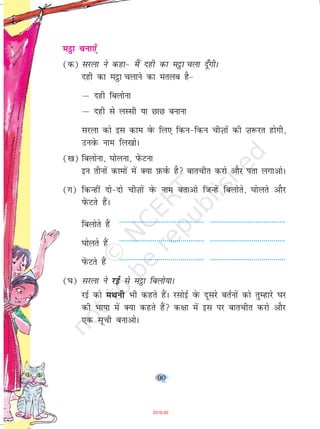 मट्ठा बनाएँ
(क) सरला ने कहा- मैं दही का मट्ठा चला दूँगी।
दही का मट्ठा चलाने का मतलब है-
– दही बिलोना
– दही से लस्सी या छाछ बनाना
सरला को इस काम के लिए किन-किन चीज़ों की ज़रूरत होगी,
उनके नाम लिखो।
(ख) बिलोना, घोलना, फेंटना
इन तीनों कामों में क्या फ़र्क है? बातचीत करो और पता लगाओ।
(ग) किन्हीं दो-दो चीज़ों के नाम बताओ जिन्हें बिलोते, घोलते और
फेंटते हैं।
बिलोते हैं
घोलते हैं
फेंटते हैं
(घ) सरला ने रई से मट्ठा बिलोया।
रई को मथनी भी कहते हैं। रसोई के दूसरे बर्तनों को तुम्हारे घर
की भाषा में क्या कहते हैं? कक्षा में इस पर बातचीत करो और
एक सूची बनाओ।
© NCERT
not to be republished
90
2019-20